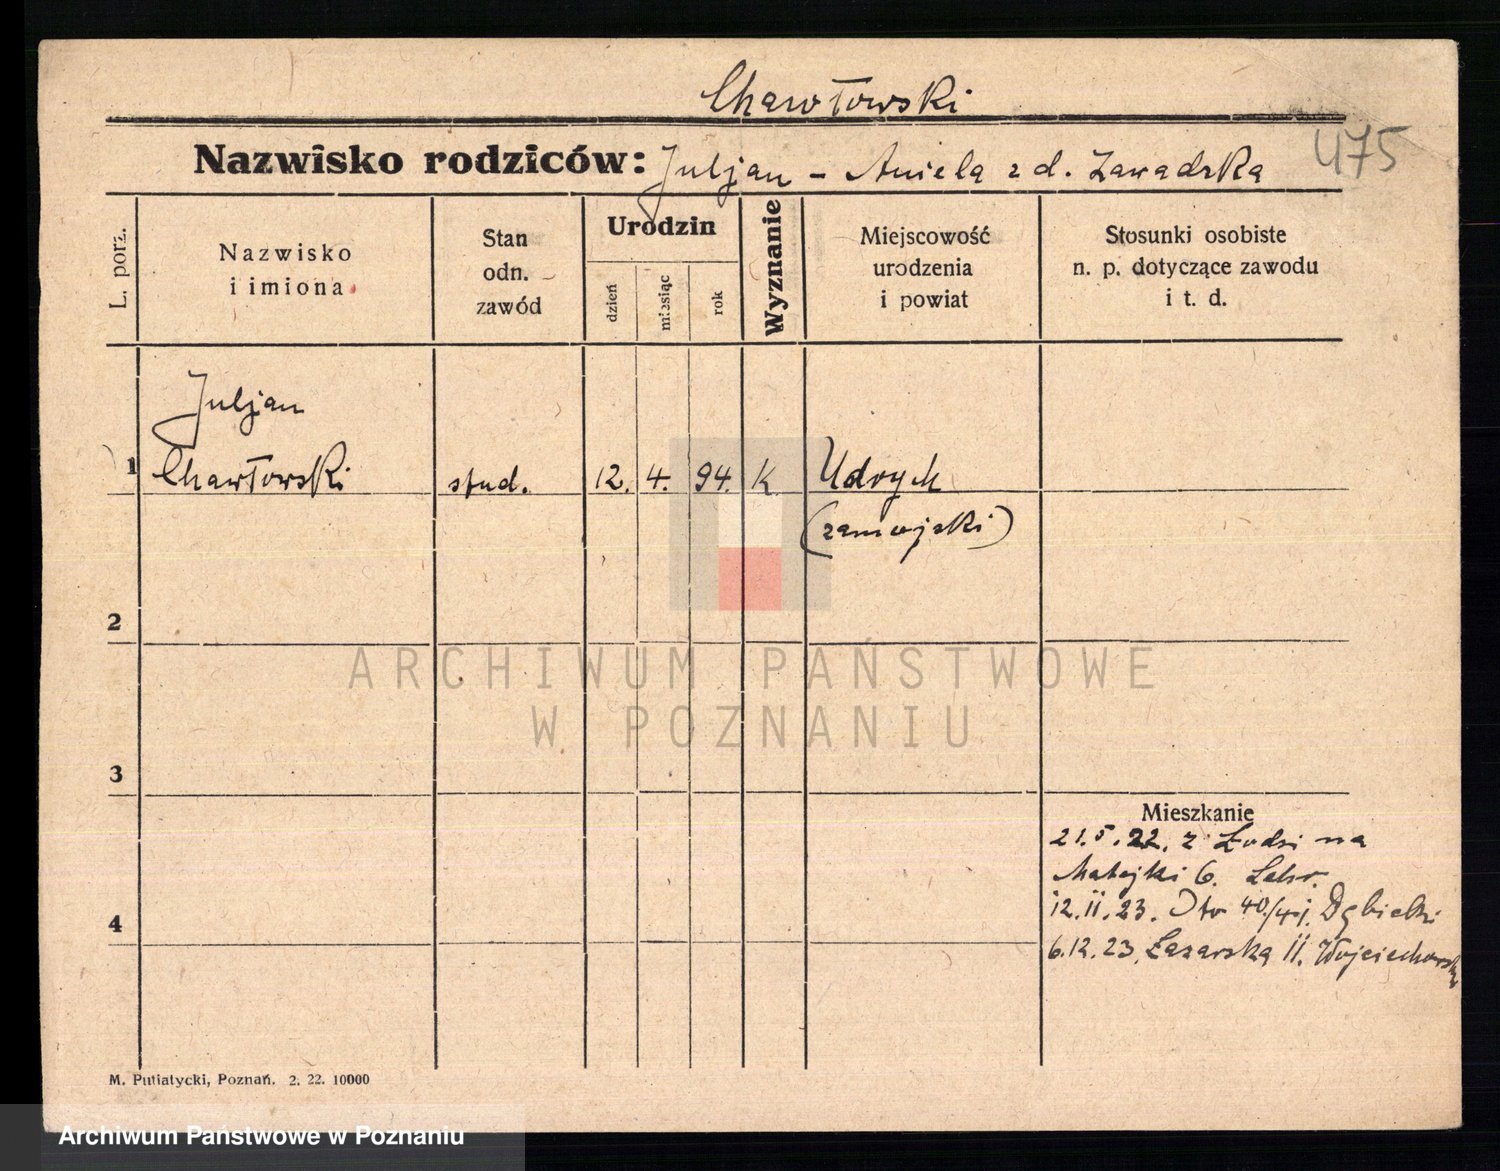 Chawłowski
475
Nazwisko rodziców: Juljan - Aniela z d. Zawadzka
L. porz.
Nazwisko
i imiona
Stan
odn.
zawód
Urodzin
dzień
miesiąc
rok
Wyznanie
Miejscowość
urodzenia
i powiat
Stosunki osobiste
n. p. dotyczące zawodu
i t. d.
Juljan
1 Chawłowski stud. 12. 4. 94. K Udrych
(zamojski)
2
ARCHIWUM PAŃSTWOWE
W POZNANIU
3
Mieszkanie
21.5.22. z Łodzi na
Matejki 6. Lehr.
12.11.23. 40/41. Dębicki
4
6.12.23. Łazarska 11. Wojciechowski
M. Putiatycki, Poznań. 2. 22. 10000
Archiwum Państwowe w Poznaniu